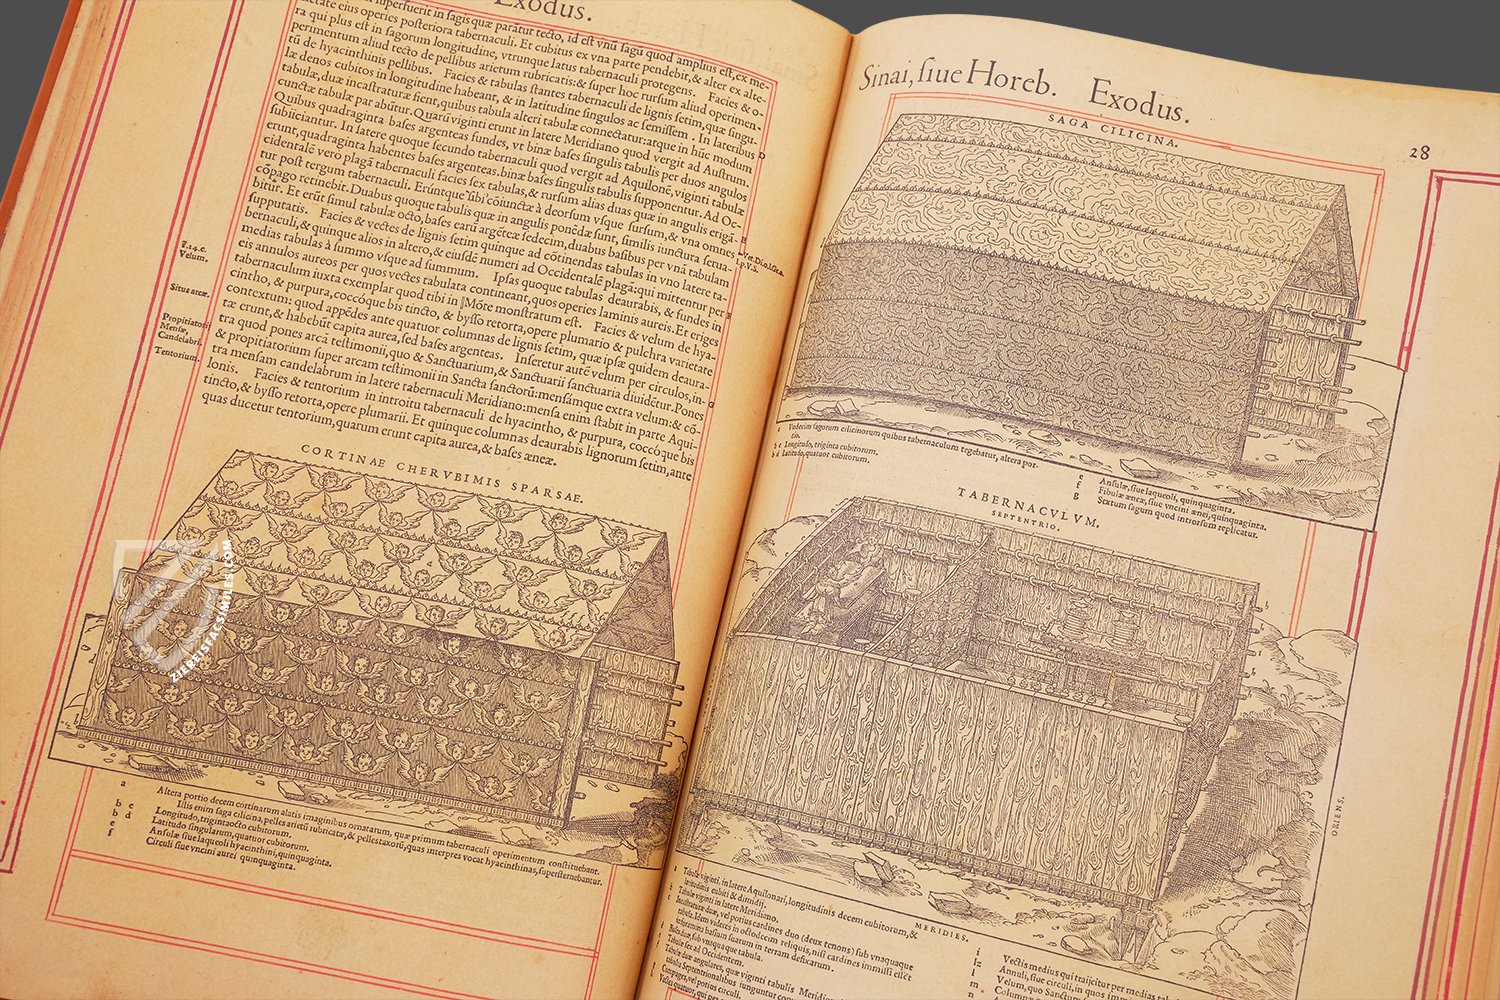 Exodus.
superfuerit in sagis quæ parātur tecto, id est vnū sagū quod amplius est, ex me-
dietate eius operies posteriora tabernaculi. Et cubitus ex vna parte pendebit, & alter ex alte-
ra qui plus est in sagorum longitudine, vtrunque latus tabernaculi protegens. Facies & o-
perimentum aliud tecto de pellibus arietum rubricatis: & super hoc rursum aliud operimen-
tū de hyacinthinis pellibus. Facies & tabulas stantes tabernaculi de lignis setim, quæ singu-
læ denos cubitos in longitudine habeant, & in latitudine singulos ac semissem. In lateribus
tabulæ, duæ incastraturæ fient, quibus tabula alteri tabulæ connectatur: atque in hūc modum
cunctæ tabulæ parabūtur. Quarū viginti erunt in latere Meridiano quod vergit ad Austrum.
Quibus quadraginta bases argenteas fundes, vt binæ bases singulis tabulis per duos angulos
subiiciantur. In latere quoque secundo tabernaculi quod vergit ad Aquilonē, viginti tabulæ
erunt, quadraginta habentes bases argenteas. binæ bases singulis tabulis supponentur. Ad Oc-
cidentalē verò plagā tabernaculi facies sex tabulas, & rursum alias duas quæ in angulis erigā-
tur post tergum tabernaculi. Erúntque sibi cōiunctæ à deorsum vsque sursum, & vna omnes
cōpago retinebit. Duabus quoque tabulis quæ in angulis ponēdæ sunt, similis iunctura serua-
bitur. Et erūt simul tabulæ octo, bases earū argēteæ sedecim, duabus basibus per vnā tabulam
supputatis. Facies & vectes de lignis setim quinque ad cōtinendas tabulas in vno latere ta-
bernaculi, & quinque alios in altero, & eiusdē numeri ad Occidentalē plagā: qui mittentur per
medias tabulas à summo vsque ad summum. Ipsas quoque tabulas deaurabis, & fundes in
eis annulos aureos per quos vectes tabulata contineant, quos operies laminis aureis. Et eriges
tabernaculum iuxta exemplar quod tibi in Mōte monstratum est. Facies & velum de hya-
cintho, & purpura, coccóque bis tincto, & bysso retorta, opere plumario & pulchra varietate
contextum: quod appēdes ante quatuor columnas de lignis setim, quæ ipsæ quidem deaura-
tæ erunt, & habebūt capita aurea, sed bases argenteas. Inseretur autē velum per circulos, in-
tra quod pones arcā testimonii, quo & Sanctuarium, & Sanctuarii sanctuaria diuidētur. Pones
& propitiatorium super arcam testimonii in Sancta sanctorū: mensámque extra velum: & cō-
tra mensam candelabrum in latere tabernaculi Meridiano: mensa enim stabit in parte Aqui-
lonis. Facies & tentorium in introitu tabernaculi de hyacintho, & purpura, coccóque bis
tincto, & bysso retorta, opere plumarii. Et quinque columnas deaurabis lignorum setim, ante
quas ducetur tentorium, quarum erunt capita aurea, & bases æneæ.
Velum.
Situs arcæ.
Propitiatorii
Mensæ,
Candelabri.
Tentorium.
CORTINAE CHERVBIMIS SPARSAE.
a Altera portio decem cortinarum alatis imaginibus ornatarum, quæ primum tabernaculi operimentum constituebant.
Illis enim saga cilicina, pelles arietū rubricatæ, & pelles taxorū, quas interpres vocat hyacinthinas, supersternebantur.
b c Longitudo, trigintaocto cubitorum.
b d Latitudo singularum, quatuor cubitorum.
e Ansulæ siue laqueoli hyacinthini, quinquaginta.
f Circuli siue vncini aurei quinquaginta.
ZIEREISFACSIMILES.COM
Sinai, siue Horeb. Exodus.
28
SAGA CILICINA.
a Vndecim sagorum cilicinorum quibus tabernaculum tegebatur, altera por-
tio.
b c Longitudo, triginta cubitorum.
b d Latitudo, quatuor cubitorum.
e Ansulæ, siue laqueoli, quinquaginta.
f Fibulæ æneæ, siue vncini ænei, quinquaginta.
g Sextum sagum quod introrsum replicatur.
TABERNACVLVM.
SEPTENTRIO.
ORIENS.
MERIDIES.
Tabulæ viginti, in latere Aquilonari, longitudinis decem cubitorum, &
latitudinis cubiti & dimidij.
Tabulæ viginti in latere Meridiano.
Incastraturæ duæ, vel potius cardines duo (deux tenons) sub vnaquaque
tabula. Idem videres in octodecim reliquis, nisi cardines immissi essēt
in foramina basium suarum in terram defixarum.
Bases duæ, sub vnaquaque tabula.
Tabulæ sex ad Occidentem.
Tabulæ duæ angulares, quæ viginti tabulis Meridion
tabulis Septentrionalibus iunguntur
Compages, vel potius circuli.
i Vectis medius qui traijcitur per medias tabulas
Annuli, siue circuli, in quos immi
l Velum, quo Sanctum
m Columnæ